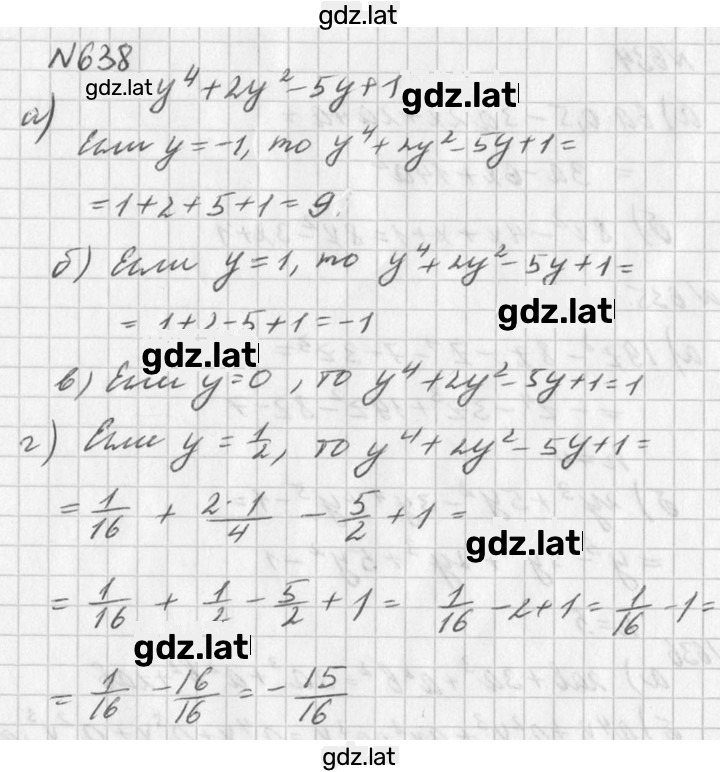 gdz.lat
N638
gdz.lat y⁴+2y²-5y+1 gdz.lat
а)
Если y=-1, то y⁴+2y²-5y+1=
=1+2+5+1=9.
б) Если y=1, то y⁴+2y²-5y+1=
gdz.lat
= 1+2-5+1=-1
gdz.lat
в) Если y=0, то y⁴+2y²-5y+1=1
г) Если y=1/2, то y⁴+2y²-5y+1=
= 1/16 + 2·1/4 - 5/2 + 1 =
gdz.lat
= 1/16 + 1/2 - 5/2 + 1 = 1/16 - 2+1 = 1/16 - 1 =
gdz.lat
= 1/16 - 16/16 = - 15/16
gdz.lat